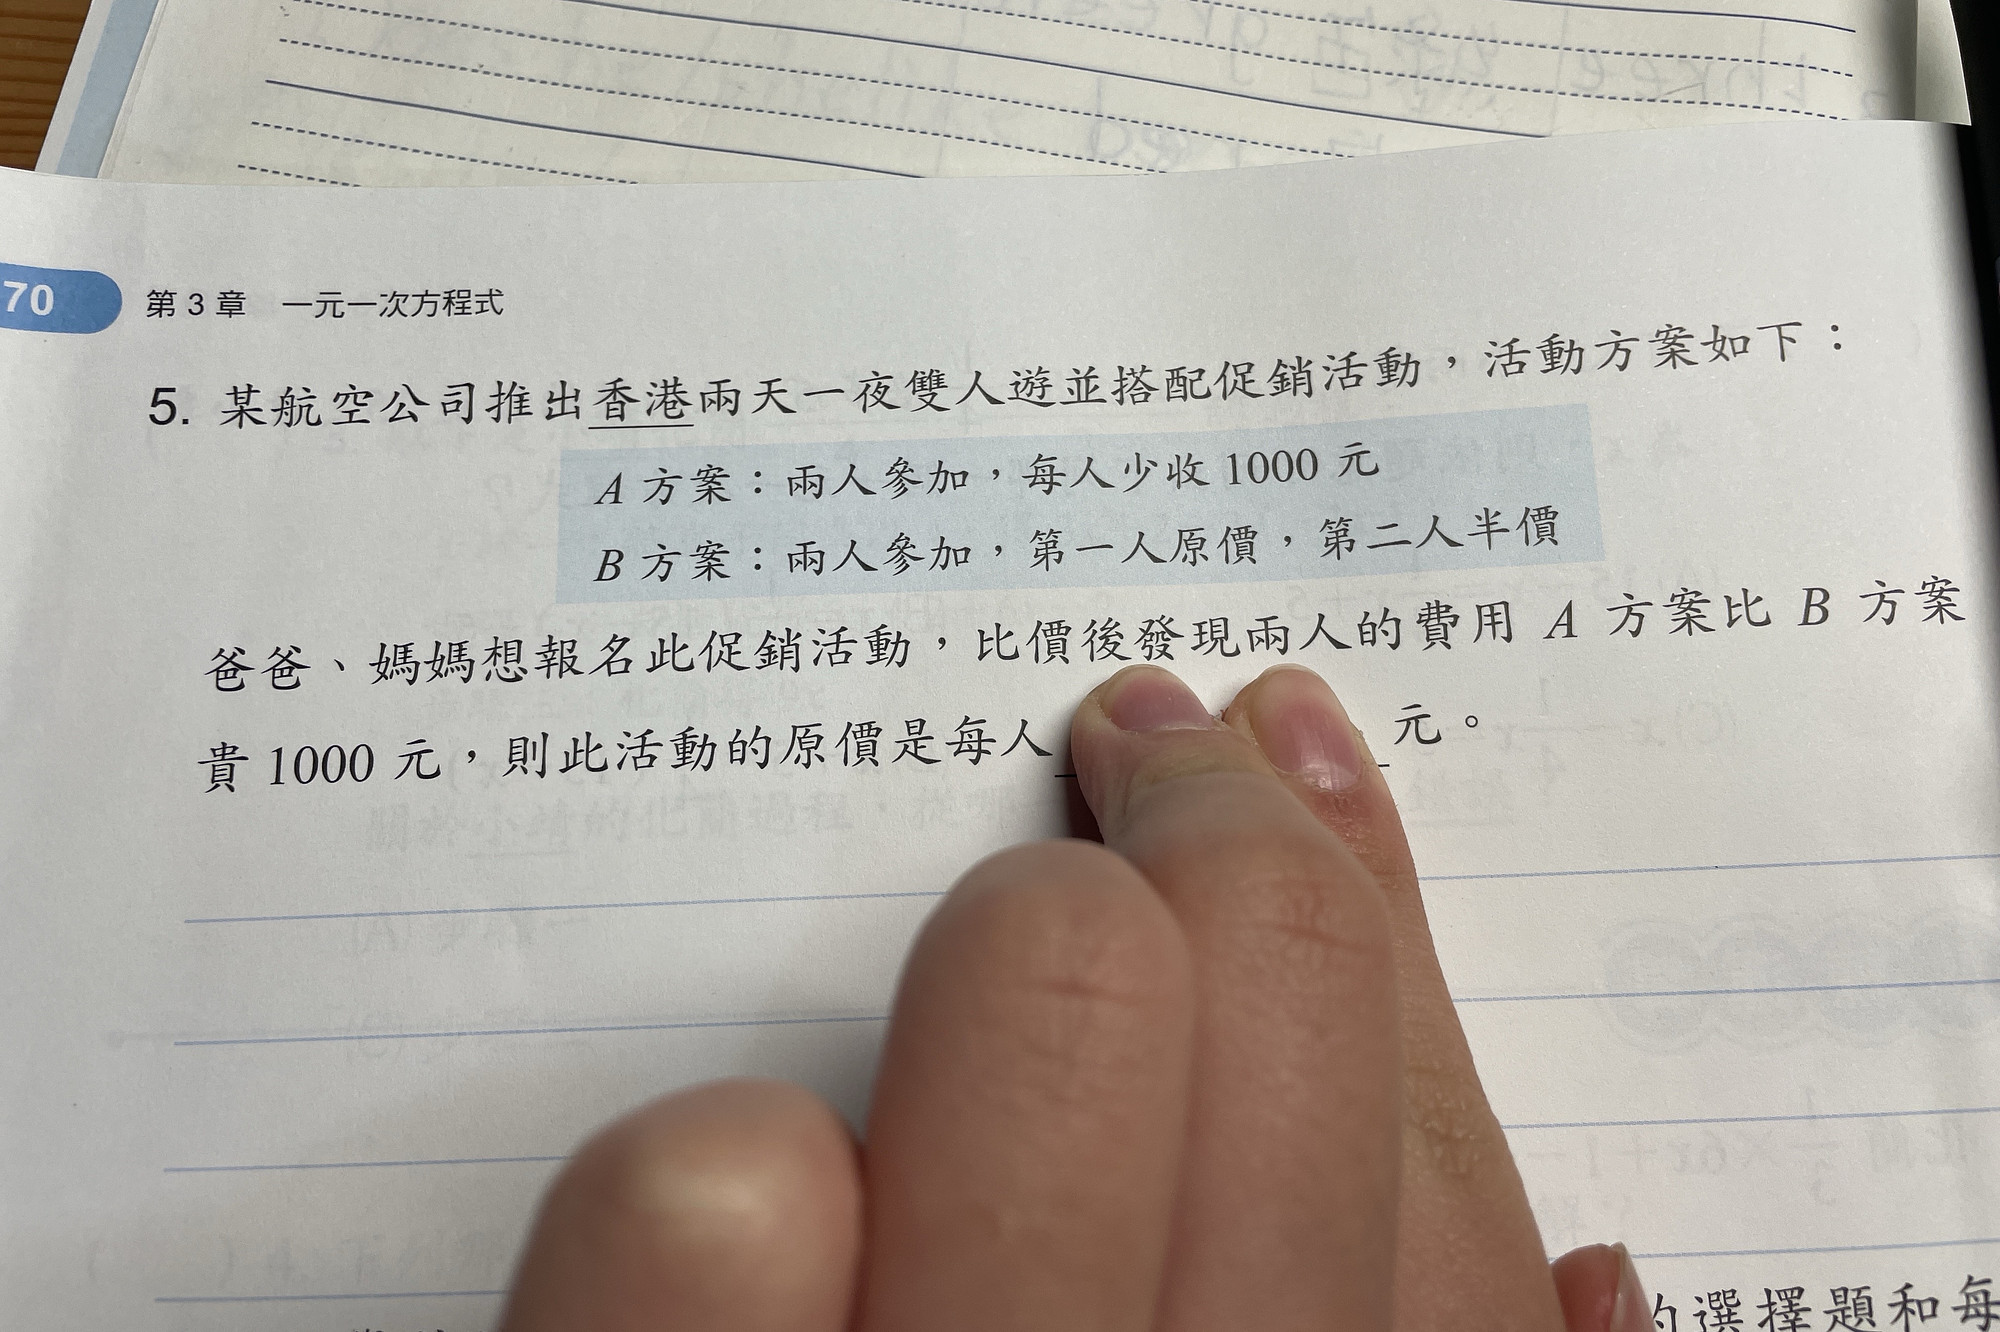 70
第 3 章 一元一次方程式
5. 某航空公司推出香港兩天一夜雙人遊並搭配促銷活動，活動方案如下：
A 方案：兩人參加，每人少收 1000 元
B 方案：兩人參加，第一人原價，第二人半價
爸爸、媽媽想報名此促銷活動，比價後發現兩人的費用 A 方案比 B 方案
貴 1000 元，則此活動的原價是每人 元。
的選擇題和每